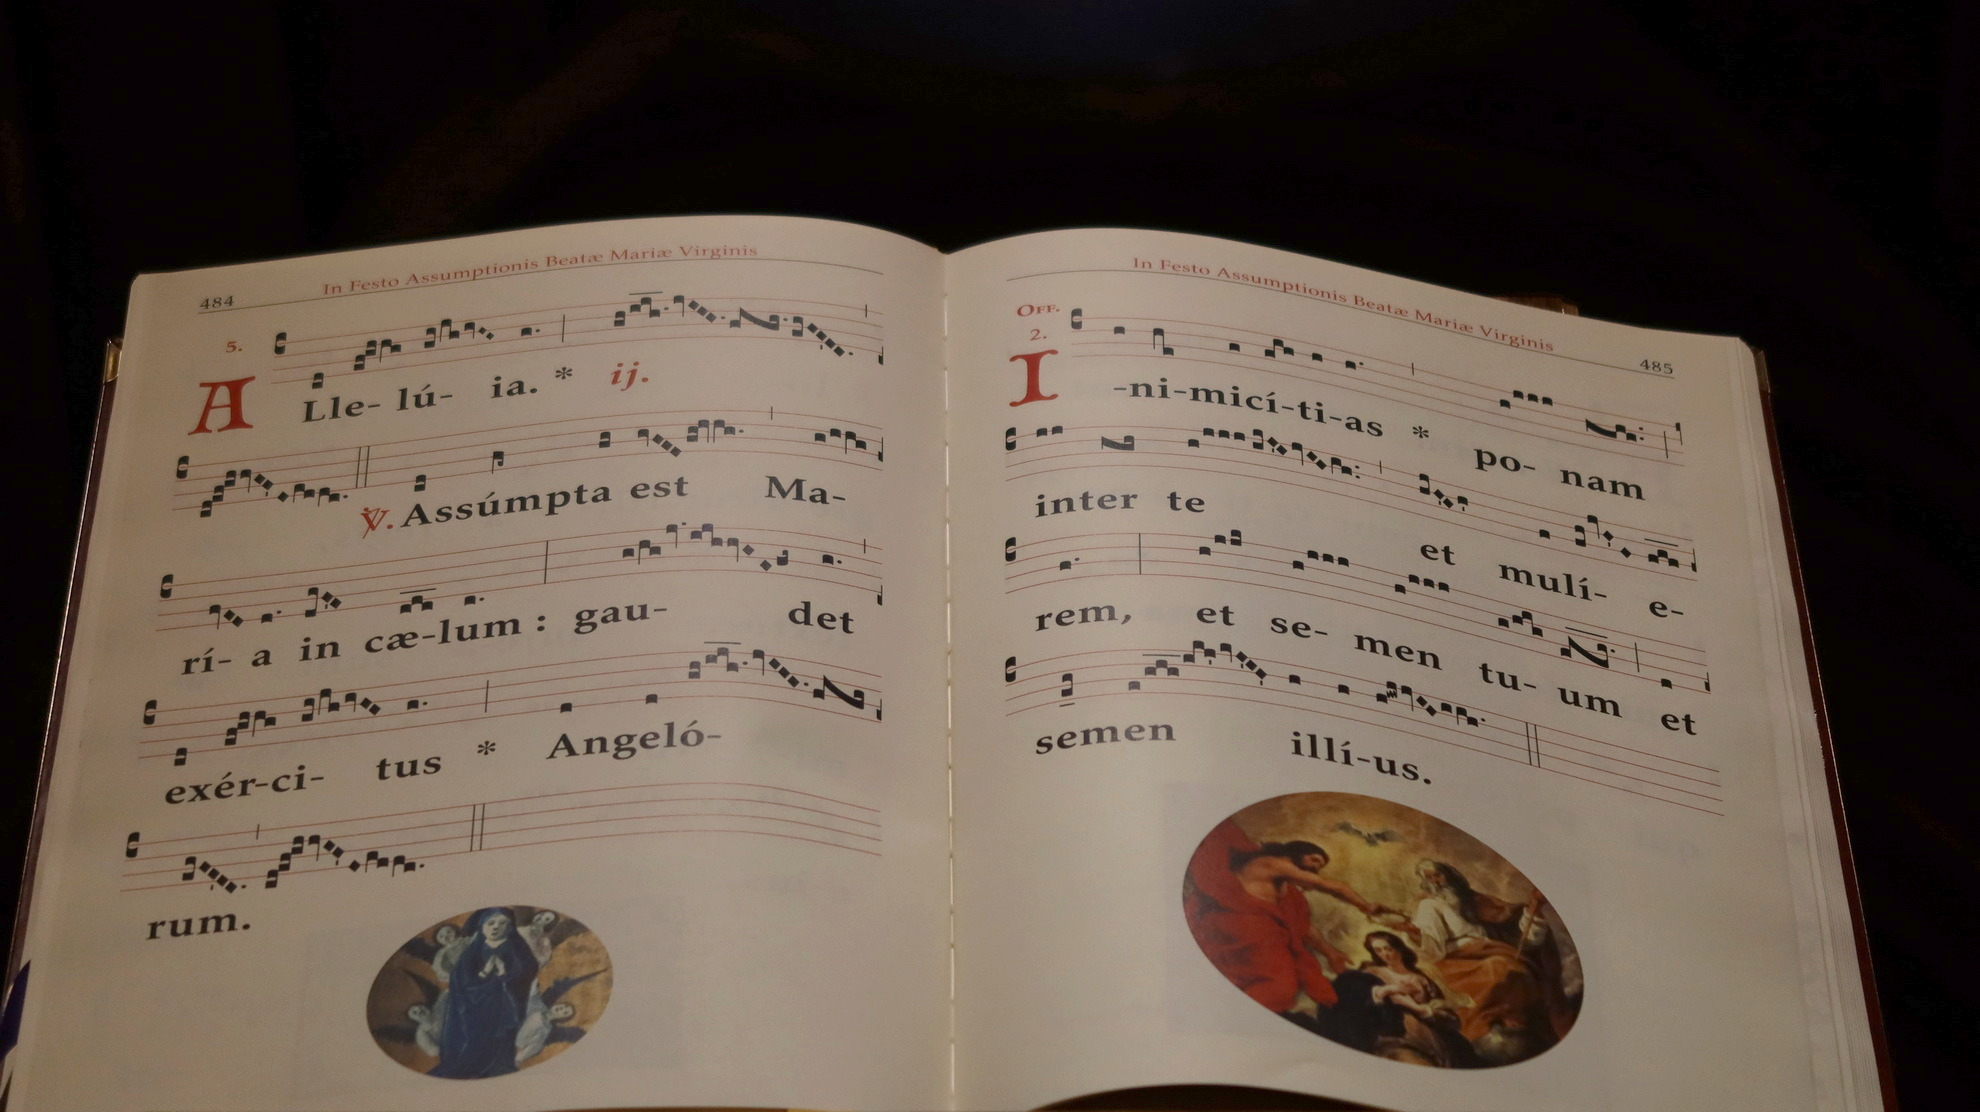 484
In Festo Assumptionis Beatæ Mariæ Virginis
5.
ALle- lú- ia. * ij.
℣. Assúmpta est Ma-
rí- a in cæ-lum : gau- det
exér-ci- tus * Angeló-
rum.
In Festo Assumptionis Beatæ Mariæ Virginis
485
Off.
2.
I-ni-micí-ti-as * po- nam
inter te et mulí- e-
rem, et se- men tu- um et
semen illí-us.